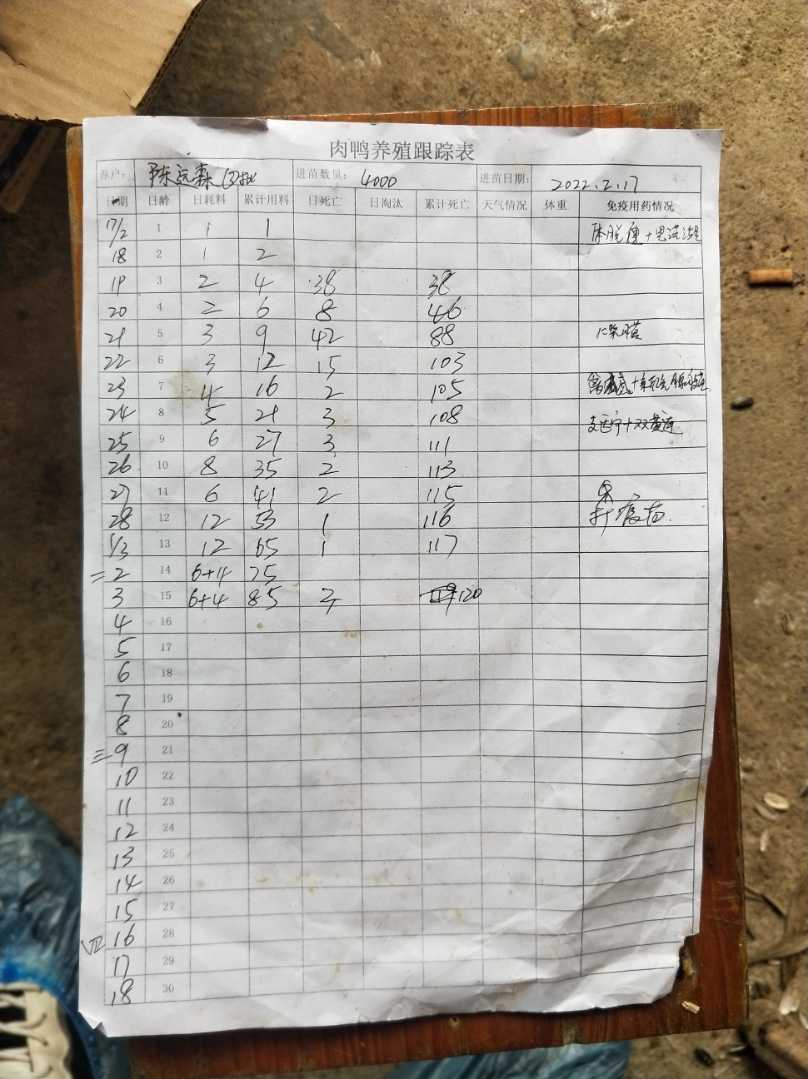 肉鸭养殖跟踪表
养户: 陈远森 进苗数量: 4000 进苗日期: 2022.2.17
日期 日龄 日耗料 累计用料 日死亡 日淘汰 累计死亡 天气情况 体重 免疫用药情况
17/2 1 1 1
18 2 1 2
19 3 2 4 38 38
20 4 2 6 8 46
21 5 3 9 42 88
22 6 3 12 15 103
23 7 4 16 2 105
24 8 5 21 3 108
25 9 6 27 3 111
26 10 8 35 2 113
27 11 6 41 2 115
28 12 12 53 1 116
1/3 13 12 65 1 117
二 2 14 6+4 75
3 15 6+4 85 120
4 16
5 17
6 18
7 19
8 20
三 9 21
10 22
11 23
12 24
13 25
14 26
15 27
16 28
17 29
18 30